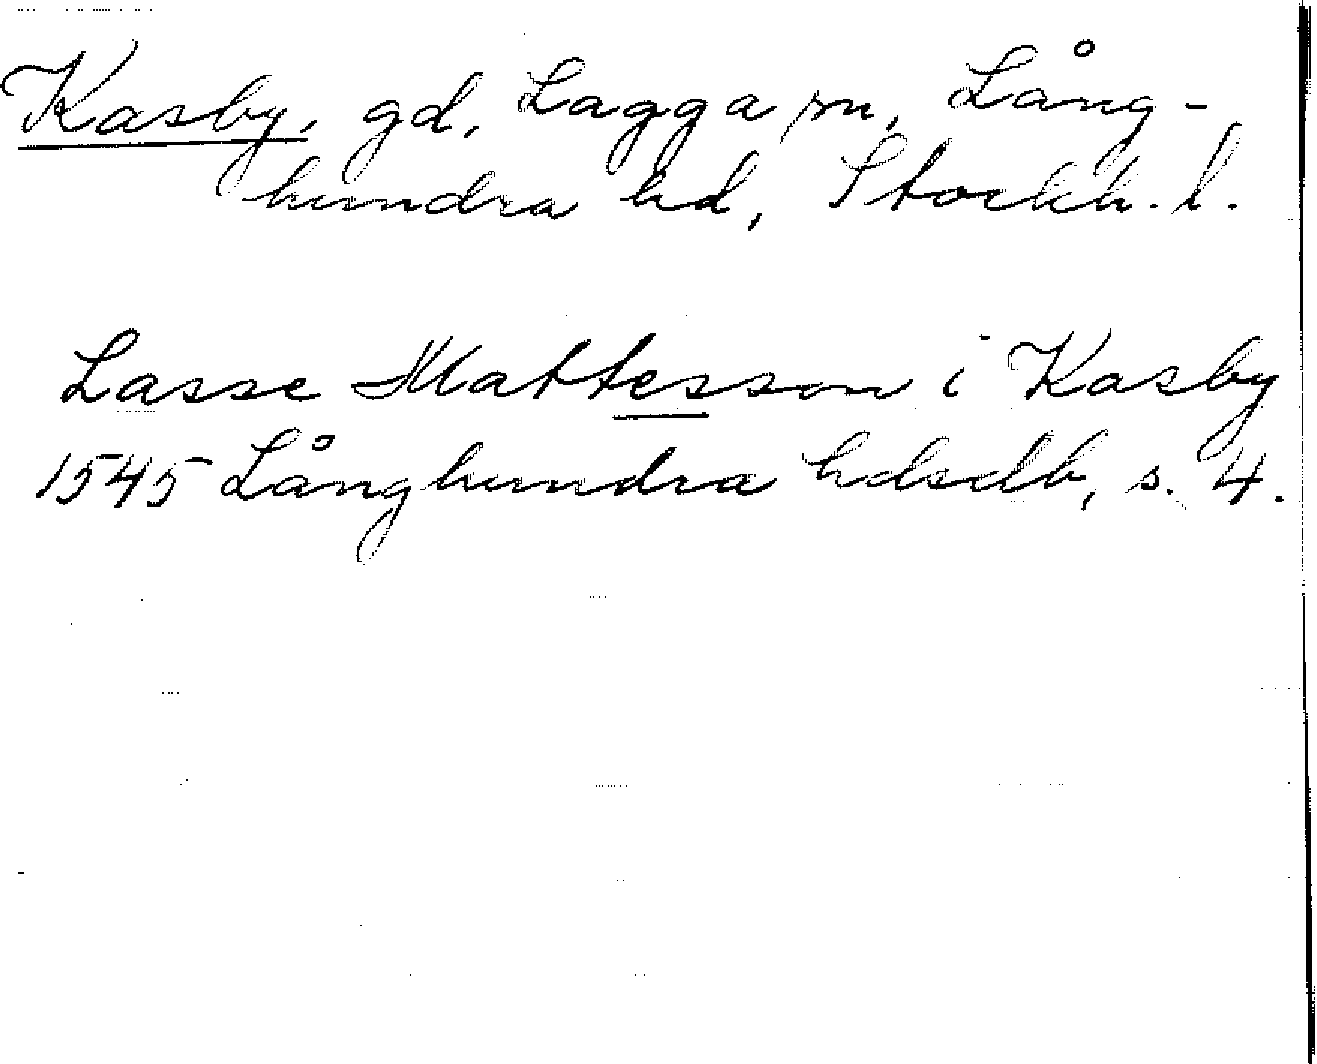 Kasby, gd, Lagga sn, Lång-
hundra hd, Stockh. l.
Lasse Mattesson i Kasby
1545 Långhundra hdsdb, s. 4.